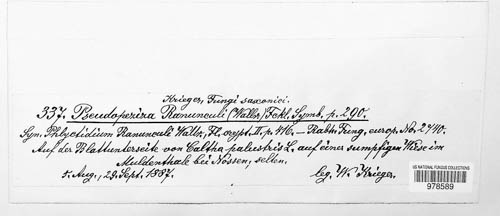 Krieger, Fungi saxonici.
337. Pseudopeziza Ranunculi (Wallr.) Fckl. Symb. p. 290.
Syn. Phlyctidium Ranunculi Wallr., Fl. crypt. II. p. 416. — Rabh. Fung. europ. No. 2740.
Auf der Blattunterseite von Caltha palustris L. auf einer sumpfigen Wiese im
Muldenthale bei Nossen, selten.
5. Aug., 29. Sept. 1887. leg. W. Krieger.
US NATIONAL FUNGUS COLLECTIONS
978589